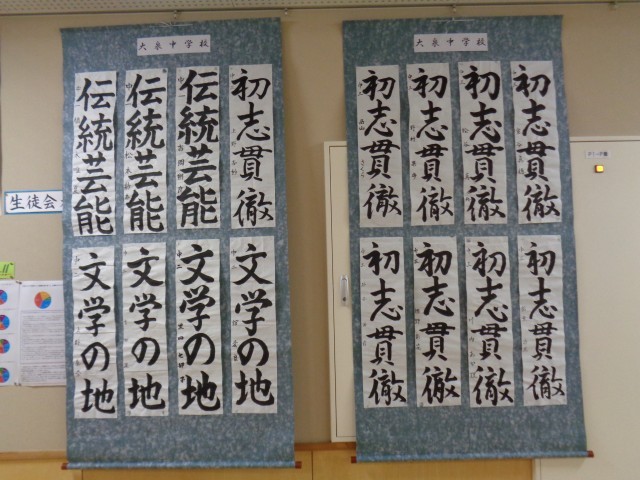 大泉中学校
初志貫徹
伝統芸能
伝統芸能
伝統芸能
文学の地
文学の地
文学の地
文学の地
大泉中学校
初志貫徹
初志貫徹
初志貫徹
初志貫徹
初志貫徹
初志貫徹
初志貫徹
初志貫徹
生徒会